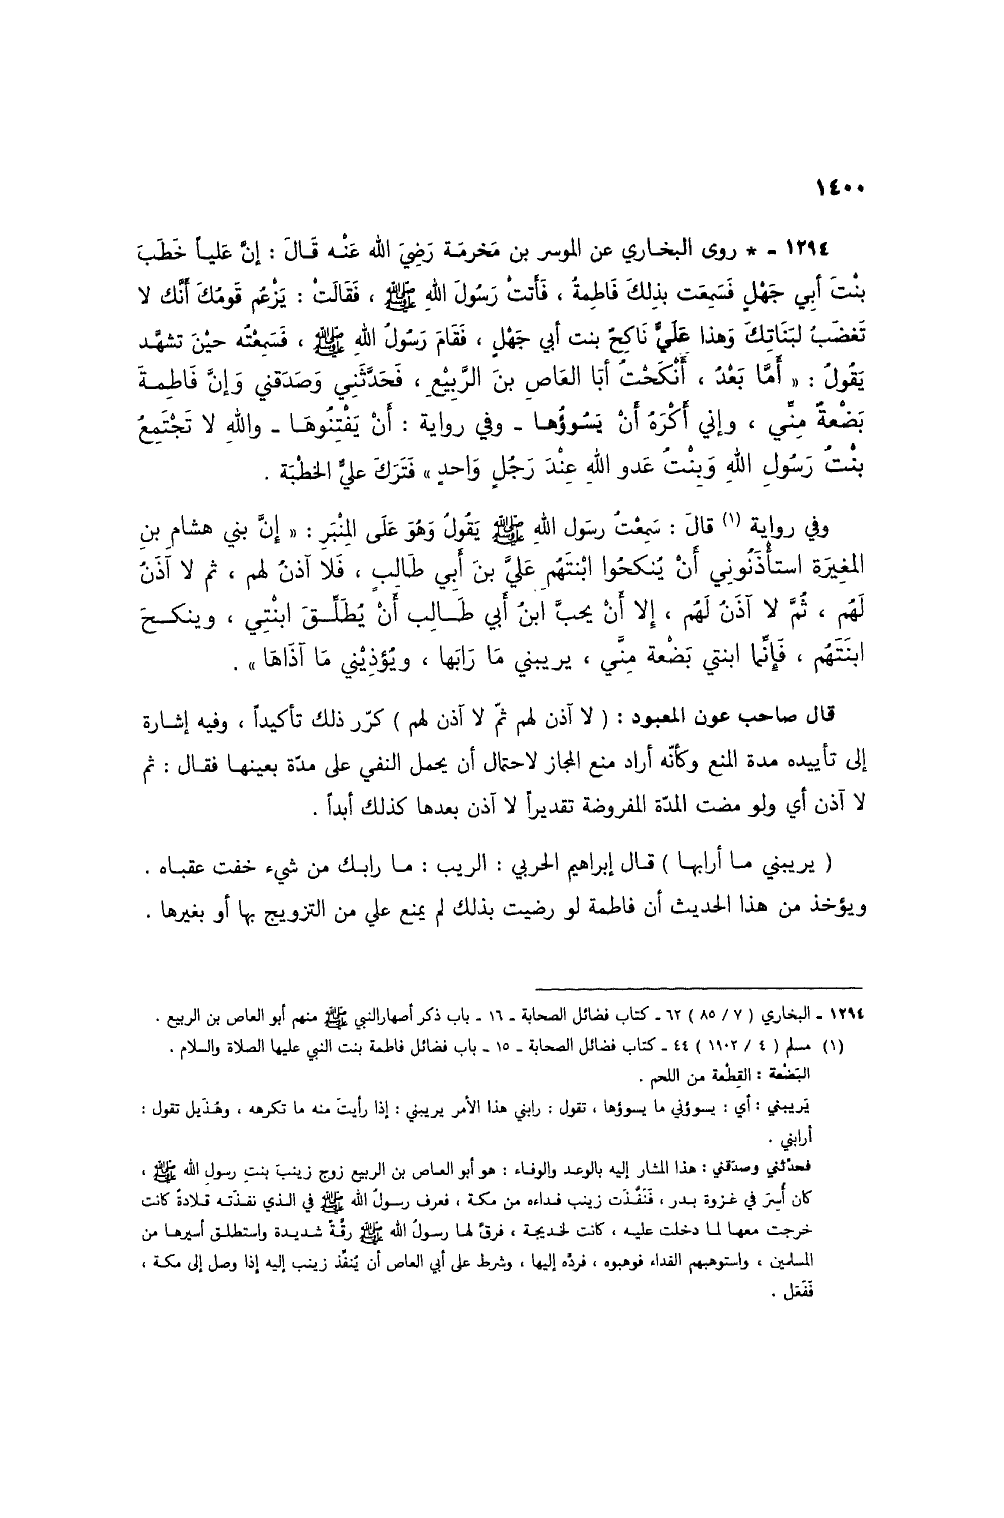 ١٤٠٠
١٢٩٤ - * روى البخاري عن الموسر بن مَخرمَة رَضِيَ الله عَنْه قَالَ : إنَّ عَلياً خَطَبَ
بنْتَ أبِي جَهْلٍ فَسَمِعَت بذلِكَ فَاطِمةُ ، فَأتتْ رَسُولَ اللهِ ﷺ ، فَقَالَتْ : يَزْعُم قَومُكَ أنَّكَ لا
تَغضَبُ لبَنَاتِكَ وَهذا عَلَيٌّ نَاكِحٌ بنت أبي جَهْلٍ ، فَقَامَ رَسُولُ اللهِ ﷺ ، فَسَمِعْتُه حيْنَ تشهَّد
يَقُولُ : « أَمَّا بَعْدُ ، أَنْكَحْتُ أبَا العَاصِ بنَ الرَّبِيْعِ ، فَحَدَّثَنِي وَصَدَقَني وَإنَّ فَاطِمةَ
بَضْعةٌ مِنِّي ، وإني أَكْرَهُ أنْ يَسُوؤُها - وفي رواية : أنْ يَفْتِنُوهَا - واللهِ لا تَجْتَمِعُ
بنْتُ رَسُولِ اللهِ وَبِنْتُ عَدو اللهِ عِنْدَ رَجُلٍ وَاحدٍ » فَتَرَكَ عليٌّ الخطْبَة .
وفي رواية (١) قالَ : سَمِعْتُ رسَول اللهِ ﷺ يَقُولُ وَهُوَ عَلَى المِنْبَرِ : « إنَّ بني هشامِ بن
المغِيرَة استأْذَنُوني أَنْ يُنكحُوا ابْنَتَهُم عَليَّ بنَ أَبي طَالِبٍ ، فَلا آذنُ لهم ، ثم لا آذَنُ
لَهُم ، ثُمَّ لا آذَنُ لَهُم ، إلا أَنْ يحبَّ ابنُ أبي طَالِب أَنْ يُطَلِّقَ ابنْتِي ، وينكحَ
ابنَتَهُم ، فَإنَّما ابنتي بَضْعة مِنَّي ، يريبني مَا رَابَها ، ويُؤذِيْني مَا آذَاهَا » .
قال صاحب عون المعبود : ( لا آذن لهم ثمّ لا آذن لهم ) كرّر ذلك تأكيداً ، وفيه إشارة
إلى تأييده مدة المنع وكأنّه أراد منع المجاز لاحتمال أن يحمل النفي على مدّة بعينها فقال : ثم
لا آذن أي ولو مضت المدّة المفروضة تقديراً لا آذن بعدها كذلك أبداً .
( يريبني ما أرابها ) قال إبراهيم الحربي : الريب : ما رابك من شيء خفت عقباه .
ويؤخذ من هذا الحديث أن فاطمة لو رضيت بذلك لم يمنع علي من التزويج بها أو بغيرها .
١٢٩٤ - البخاري ( ٧ / ٨٥ ) ٦٢ - كتاب فضائل الصحابة - ١٦ - باب ذكر أصهارالنبي ﷺ منهم أبو العاص بن الربيع .
(١) مسلم ( ٤ / ١٩٠٢ ) ٤٤ - كتاب فضائل الصحابة - ١٥ - باب فضائل فاطمة بنت النبي عليها الصلاة والسلام .
البَضْعة : القِطْعة من اللحم .
يَريبني : أي : يسوؤني ما يسوؤها ، تقول : رابني هذا الأمر يريبني : إذا رأيتَ منه ما تكرهه ، وهُذَيل تقول :
أرابني .
فحدّثني وصدَقني : هذا المشار إليه بالوعد والوفاء : هو أبو العاص بن الربيع زوج زينبَ بنتِ رسولِ الله ﷺ ،
كان أُسِرَ في غزوة بدر ، فَنَفَّذَت زينب فداءه من مكة ، فعرف رسولُ الله ﷺ في الذي نفذَته قلادةً كانت
خرجت معها لما دخلت عليه ، كانت لخديجة ، فرقّ لها رسولُ الله ﷺ رِقّةً شديدة واستطلق أسيرها من
المسلمين ، واستوهبهم الفداء فوهبوه ، فردّه إليها ، وشرط على أبي العاص أن يُنفِّذ زينب إليه إذا وصل إلى مكة ،
فَفَعَل .